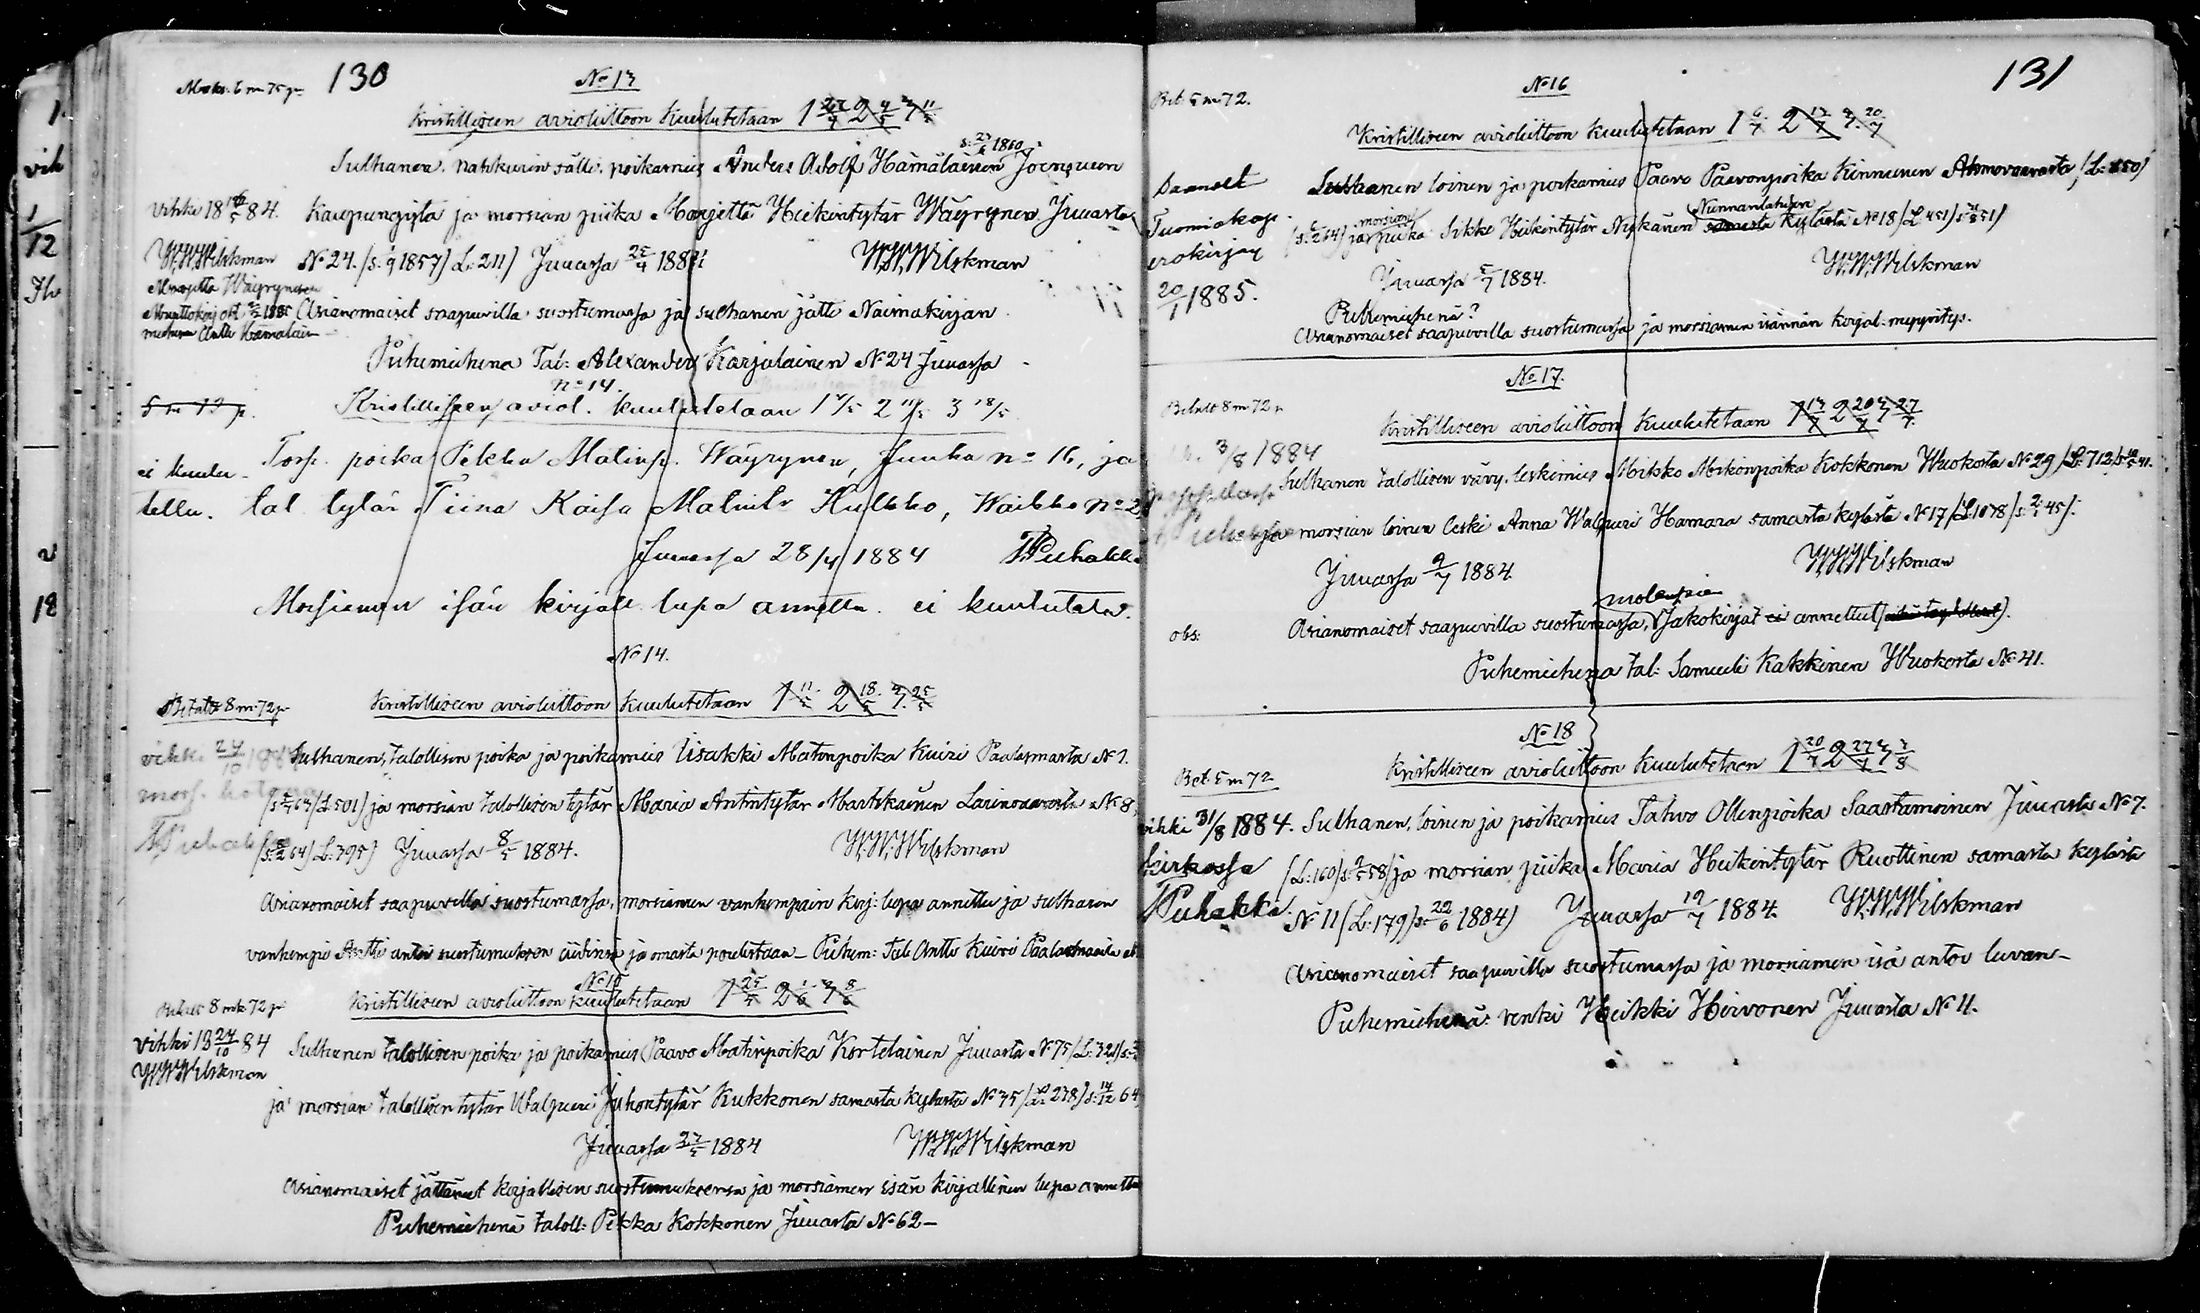 130
Maks. 6 m 75 p
No 13
Kristilliseen avioliittoon kuulutetaan 1 27/4 2 4/5 3 11/5
s: 27/6 1860
Sulhanen, nahkurin sälli, poikamies Anders Adolf Hämäläinen Joensuun
Vihki 18 16/5 84.
Kaupungista ja morsian piika Margetta Heikintytär Wäyrynen Juuasta
WWWilskman
No 24. (s: 1857) L: 211) Juuassa 25/4 1884.
WWWilskman
Margetta Wäyrynen
Muuttokirj. 1885
miehen Antti Hämäläin
Asianomaiset saapuvilla suostumassa ja sulhanen jätti Naimakirjan
Puhemiehenä Tal: Alexander Karjalainen No 24 Juuassa
no 14.
5 m 72 p.
Kristilliseen aviol. kuulutetaan 1 4/5 2 11/5 3 18/5
Torp. poika Pekka Matinp. Wäyrynen, Juuka no 16, ja
ei kuulu-
tettu.
tal. tytär Tiina Kaisa Matintr Hulkko, Waikko no 2
Juuassa 28/4 1884 TPuhakka
Morsiamen isän kirjall. lupa annettu. ei kuuluteta.
No 14.
Betalt 8 m 72 p
Kristilliseen avioliittoon kuulutetaan 1 11/5 2 18/5 3 25/5
vihki 24/10 1884
Sulhanen, talollisen poika ja poikamies Iisakki Matinpoika Kuiri Paalasmaasta No 1.
mors. kotona
(L: 501) ja morsian talollisen tytär Maria Antintytär Martikainen Larinsaaresta No 8
TPuhak
64) L: 395) Juuassa 8/5 1884.
WWWilskman
Asianomaiset saapuvilla suostumassa, morsiamen vanhempain kirj: lupa annettu ja sulhasen
vanhempi Antti antoi suostumuksen äidinsä ja omasta puolestaan – Puhem: Tal: Antti Kuiri Paalasmaalta
No 15
Betalt 8 mk 72 p
Kristilliseen avioliittoon kuulutetaan 1 25/5 2 1/6 3 8/6
Vihki 18 24/10 84
WWWilskman
Sulhanen talollisen poika ja poikamies Paavo Matinpoika Kortelainen Juuasta No 75 (L: 321)
ja morsian talollisen tytär Walpuri Juhontytär Kukkonen samasta kylästä No 45 (L: 278) s: 14/12 64
Juuassa 23/5 1884 WWWilskman
Asianomaiset jättäneet kirjallisen suostumuksensa ja morsiamen isän kirjallinen lupa annettu
Puhemiehenä taloll: Pekka Kokkonen Juuasta No 62 –
131
Bet. 5 m 72.
No 16
Kristilliseen avioliittoon kuulutetaan 1 6/7 2 13/7 3 20/7
Saaneet
Tuomiokap.
erokirjan
20/1 1885.
Sulhanen loinen ja poikamies Paavo Paavonpoika Kinnunen Ahmovaarasta, (L: 850)
morsian
Nunnanlahden
64) ja piika Sikke Heikintytär Nykänen samasta kylästä No 18 (L 451) 51)
Juuassa 5/7 1884. WWWilskman
Puhemiehenä?
Asianomaiset saapuvilla suostumassa ja morsiamen isännän kirjal: myyvitys.
No 17.
Betalt 8 m 72 p
Kristilliseen avioliittoon kuulutetaan 1 13/7 2 20/7 3 27/7
3/8 1884
Sulhanen talollisen vävy, leskimies Mikko Mikonpoika Kokkonen Wuokosta No 29 (L: 712) 41.
ja morsian loinen leski Anna Walpuri Hamara samasta kylästä No 17 (L 1078) s: 45).
Juuassa 9/7 1884. WWWilskman
molempien
obs:
Asianomaiset saapuvilla suostumassa, Jakokirjat ei annettut
Puhemiehenä tal: Samueli Kakkinen Wuokosta No 41.
No 18
Bet. 5 m 72
Kristilliseen avioliittoon kuulutetaan 1 20/7 2 27/7 3 3/8
vihki 31/8 1884.
kirkossa
TPuhakka
Sulhanen, loinen ja poikamies Tahvo Ollinpoika Saastamoinen Juuasta No 7.
(L: 160) 58) ja morsian piika Maria Heikintytär Ruottinen samasta kylästä
No 11 (L: 179) s: 22/6 1884) Juuassa 19/7 1884. WWWilskman
Asianomaiset saapuvilla suostumassa ja morsiamen isä antoi luvan –
Puhemiehenä: renki Heikki Hirvonen Juuasta No 11.